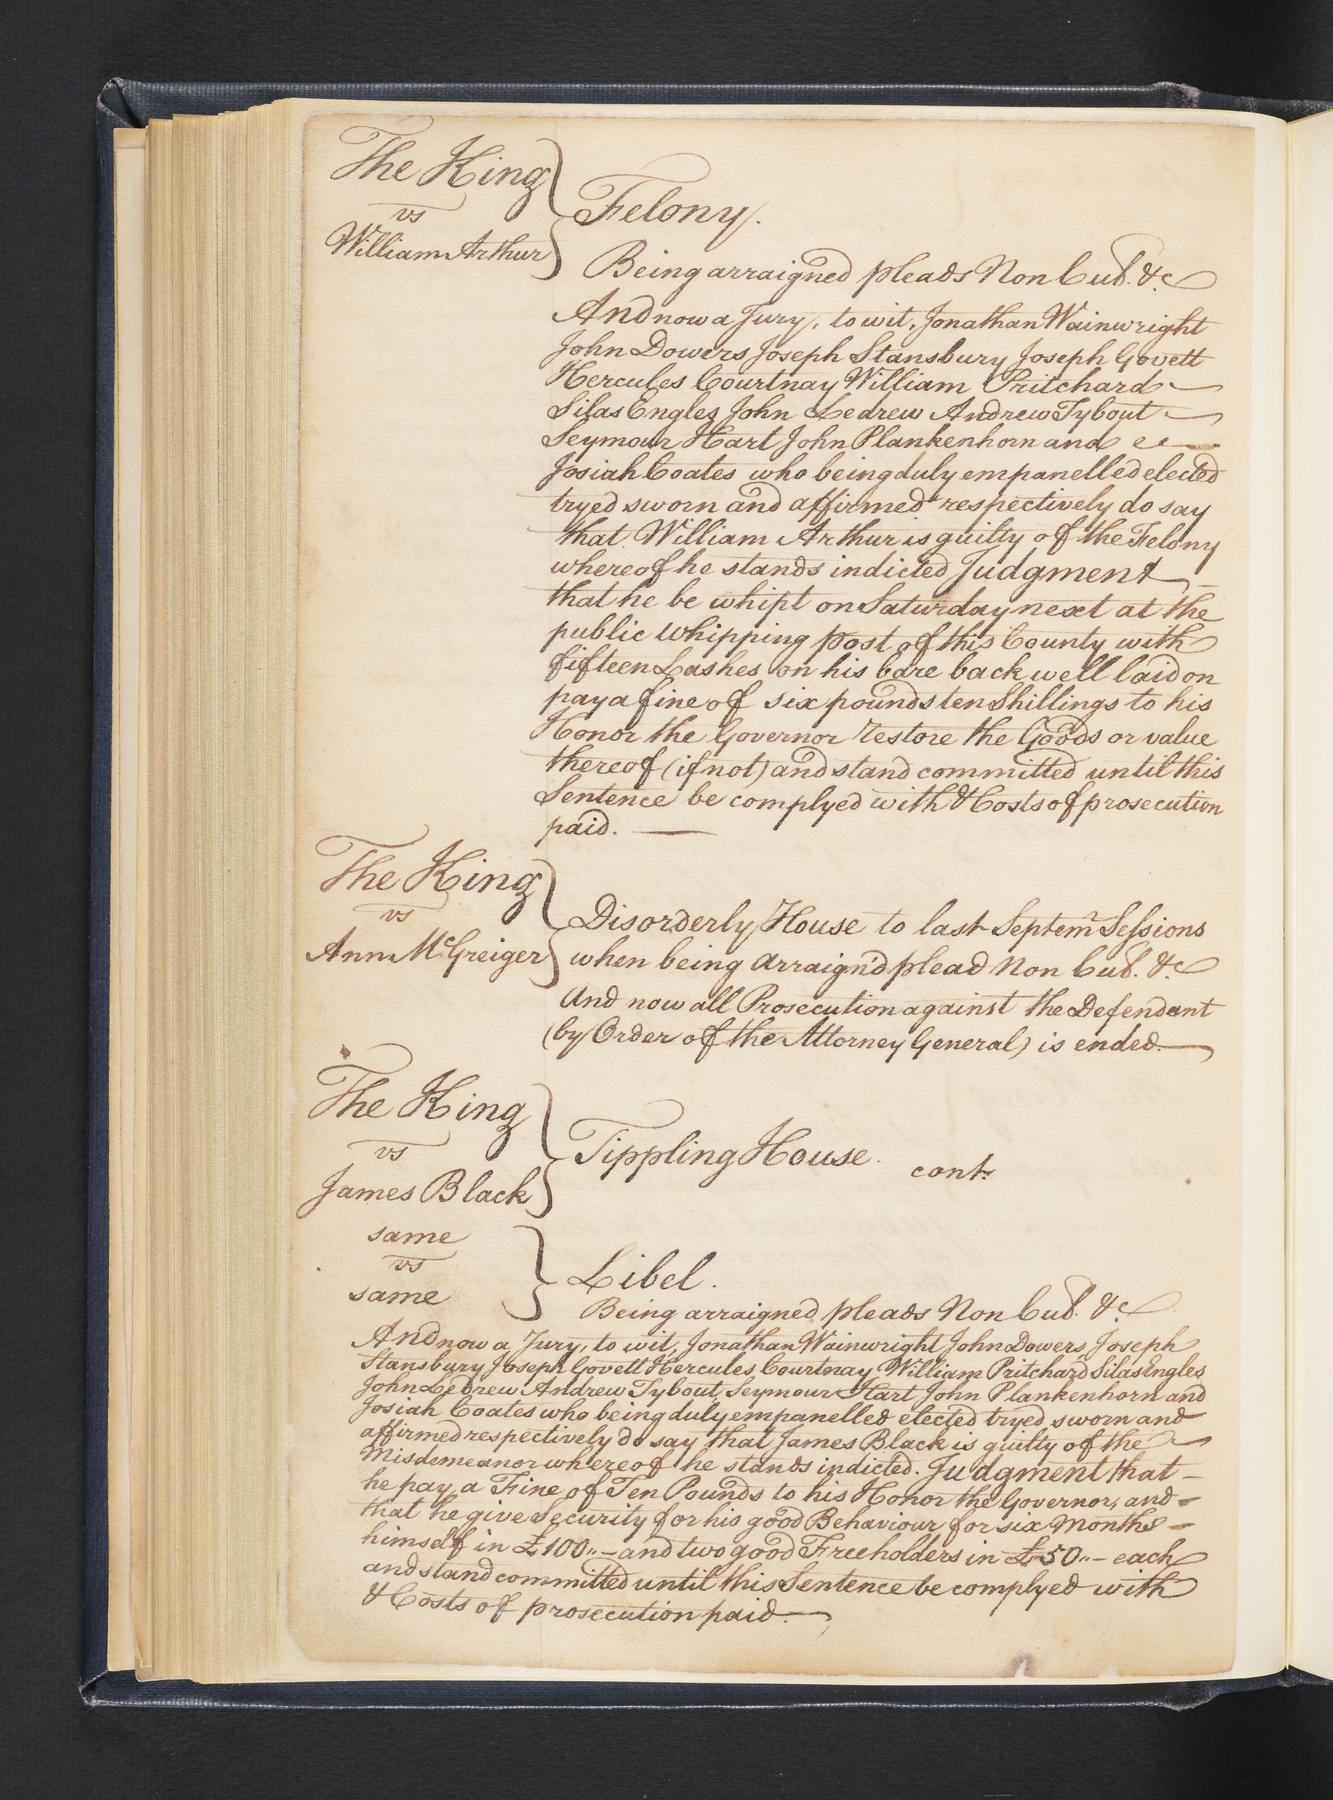 The King
vs
William Arthur
Felony.
Being arraigned pleads Non Cul. &c
And now a Jury, to wit, Jonathan Wainwright
John Dowers Joseph Stansbury Joseph Govett
Hercules Courtnay William Pritchard
Silas Engles John Ledrew Andrew Tybout
Seymour Hart John Plankenhorn and
Josiah Coates who being duly empanelled elected
tryed sworn and affirmed respectively do say
that William Arthur is guilty of the Felony
whereof he stands indicted Judgment
that he be whipt on Saturday next at the
public whipping post of this County with
fifteen Lashes on his bare back well laid on
pay a fine of six pounds ten Shillings to his
Honor the Governor restore the Goods or value
thereof (if not) and stand committed until this
Sentence be complyed with & Costs of prosecution
paid.
The King
vs
Ann McGreiger
Disorderly House to last Septemr Sessions
when being arraign'd plead Non Cul. &c
And now all Prosecution against the Defendant
(by Order of the Attorney General) is ended.
The King
vs
James Black
Tippling House. cont.
same
vs
same
Libel.
Being arraigned pleads Non Cul. &c
And now a Jury, to wit, Jonathan Wainwright John Dowers Joseph
Stansbury Joseph Govett Hercules Courtnay William Pritchard Silas Engles
John Ledrew Andrew Tybout Seymour Hart John Plankenhorn and
Josiah Coates who being duly empanelled elected tryed sworn and
affirmed respectively do say that James Black is guilty of the
Misdemeanor whereof he stands indicted. Judgment that
he pay a Fine of Ten Pounds to his Honor the Governor, and
that he give Security for his good Behaviour for six Months
himself in £100..– and two good Freeholders in £50..– each
and stand committed until this Sentence be complyed with
& Costs of prosecution paid.